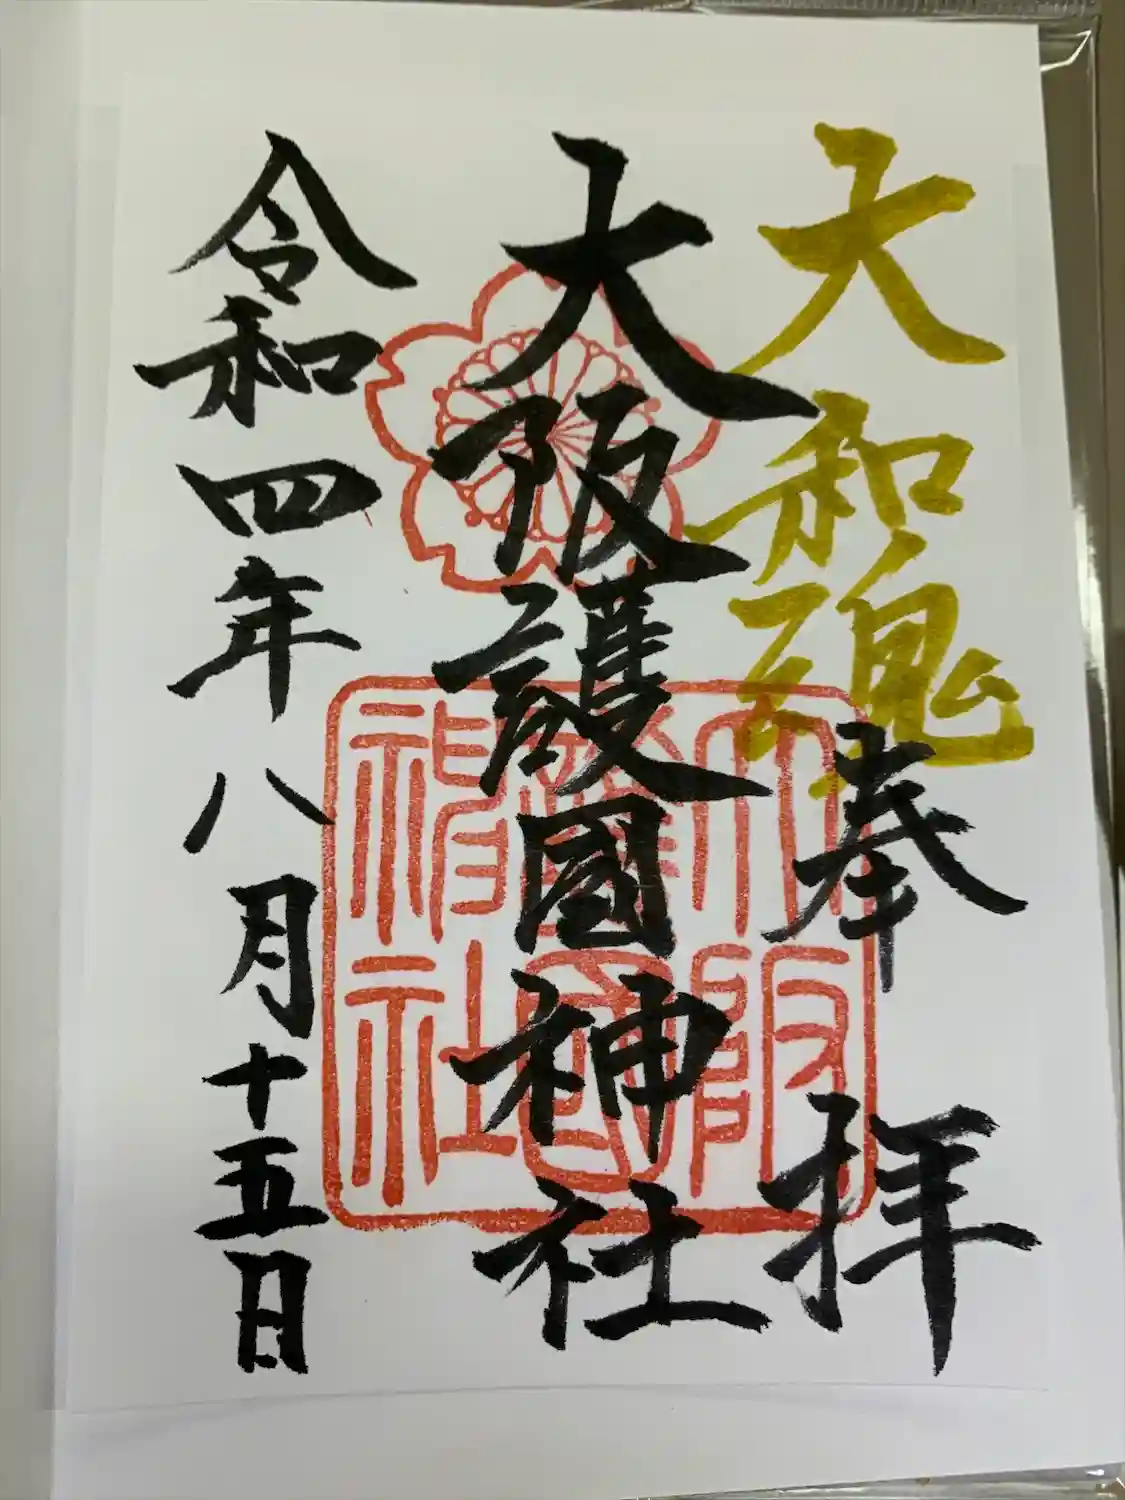 大和魂
奉拝
大阪護國神社
大阪護國神社
令和四年八月十五日